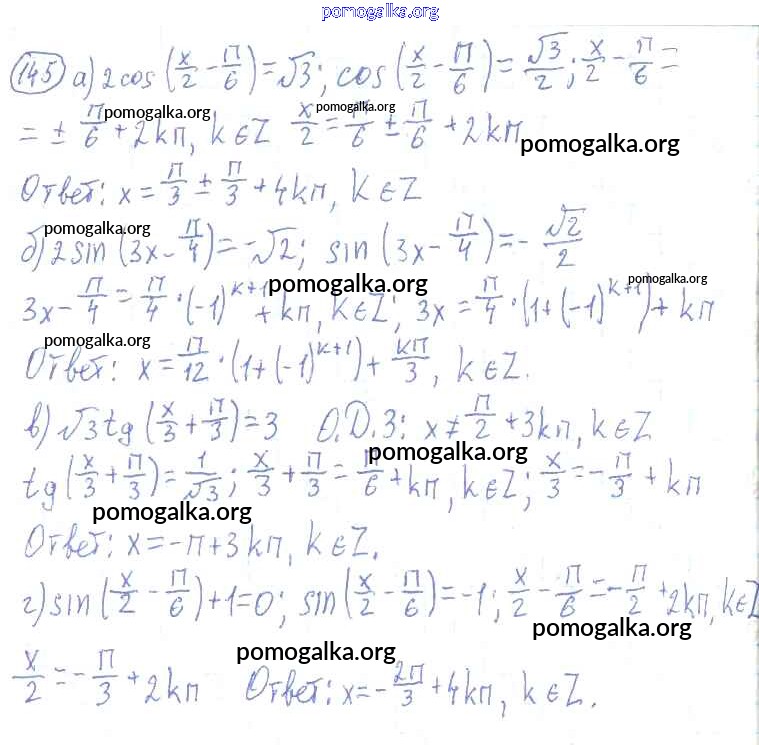 pomogalka.org
145 а) 2cos(x/2 - π/6) = √3; cos(x/2 - π/6) = √3/2; x/2 - π/6 =
= ± π/6 + 2kπ, k∈Z x/2 = π/6 ± π/6 + 2kπ
pomogalka.org pomogalka.org pomogalka.org
Ответ: x = π/3 ± π/3 + 4kπ, k∈Z
pomogalka.org
б) 2sin(3x - π/4) = -√2; sin(3x - π/4) = - √2/2
pomogalka.org pomogalka.org
3x - π/4 = π/4 · (-1)^(k+1) + kπ, k∈Z; 3x = π/4 · (1+(-1)^(k+1)) + kπ
pomogalka.org
Ответ: x = π/12 · (1+(-1)^(k+1)) + kπ/3, k∈Z.
в) √3tg(x/3 + π/3) = 3 О.Д.З: x ≠ π/2 + 3kπ, k∈Z
pomogalka.org
tg(x/3 + π/3) = 1/√3; x/3 + π/3 = π/6 + kπ, k∈Z; x/3 = -π/3 + kπ
pomogalka.org
Ответ: x = -π + 3kπ, k∈Z.
г) sin(x/2 - π/6) + 1 = 0; sin(x/2 - π/6) = -1; x/2 - π/6 = -π/2 + 2kπ, k∈Z
pomogalka.org
pomogalka.org
x/2 = -π/3 + 2kπ Ответ: x = -2π/3 + 4kπ, k∈Z.